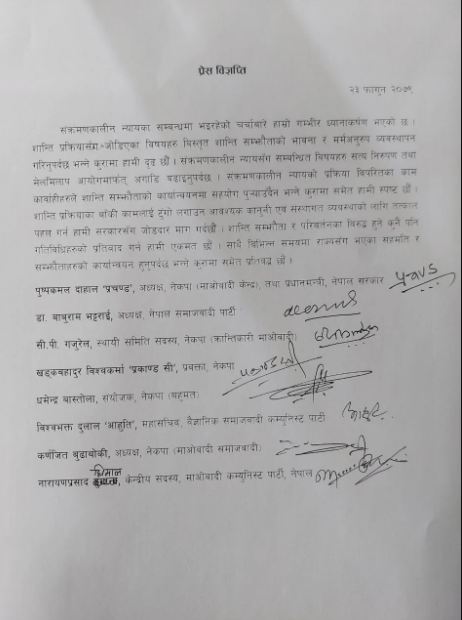 प्रेस विज्ञप्ति
२३ फागुन २०७९
संक्रमणकालीन न्यायका सम्बन्धमा भइरहेको चर्चाबारे हाम्रो गम्भीर ध्यानाकर्षण भएको छ ।
शान्ति प्रक्रियासँग जोडिएका विषयहरु विस्तृत शान्ति सम्झौताको भावना र मर्मअनुरुप व्यवस्थापन
गरिनुपर्दछ भन्ने कुरामा हामी दृढ छौं । संक्रमणकालीन न्यायसँग सम्बन्धित विषयहरु सत्य निरुपण तथा
मेलमिलाप आयोगमार्फत् अगाडि बढाइनुपर्दछ । संक्रमणकालीन न्यायको प्रक्रिया विपरितका काम
कारवाहीहरुले शान्ति सम्झौताको कार्यान्वयनमा सहयोग पुर्‍याउदैन भन्ने कुरामा समेत हामी स्पष्ट छौं ।
शान्ति प्रक्रियाका बाँकी कामलाई टुंगो लगाउन आवश्यक कानूनी एवं संस्थागत व्यवस्थाको लागि तत्काल
पहल गर्न हामी सरकारसँग जोडदार माग गर्दछौं । शान्ति सम्झौता र परिवर्तनका विरुद्ध हुने कुनै पनि
गतिविधिहरुको प्रतिवाद गर्न हामी एकमत छौं । साथै विभिन्न समयमा राज्यसँग भएका सहमति र
सम्झौताहरुको कार्यान्वयन हुनुपर्दछ भन्ने कुरामा समेत प्रतिवद्ध छौं ।
पुष्पकमल दाहाल 'प्रचण्ड', अध्यक्ष, नेकपा (माओवादी केन्द्र), तथा प्रधानमन्त्री, नेपाल सरकार
डा. बाबुराम भट्टराई, अध्यक्ष, नेपाल समाजवादी पार्टी
सी.पी. गजुरेल, स्थायी समिति सदस्य, नेकपा (क्रान्तिकारी माओवादी)
खड्कबहादुर विश्वकर्मा 'प्रकाण्ड सी', प्रवक्ता, नेकपा
धमेन्द्र बास्तोला, संयोजक, नेकपा (बहुमत)
विश्वभक्त दुलाल 'आहुति', महासचिव, वैज्ञानिक समाजवादी कम्युनिस्ट पार्टी
कर्णजित बुढाथोकी, अध्यक्ष, नेकपा (माओवादी समाजवादी)
धिमाल
नारायणप्रसाद, केन्द्रीय सदस्य, माओवादी कम्युनिस्ट पार्टी, नेपाल